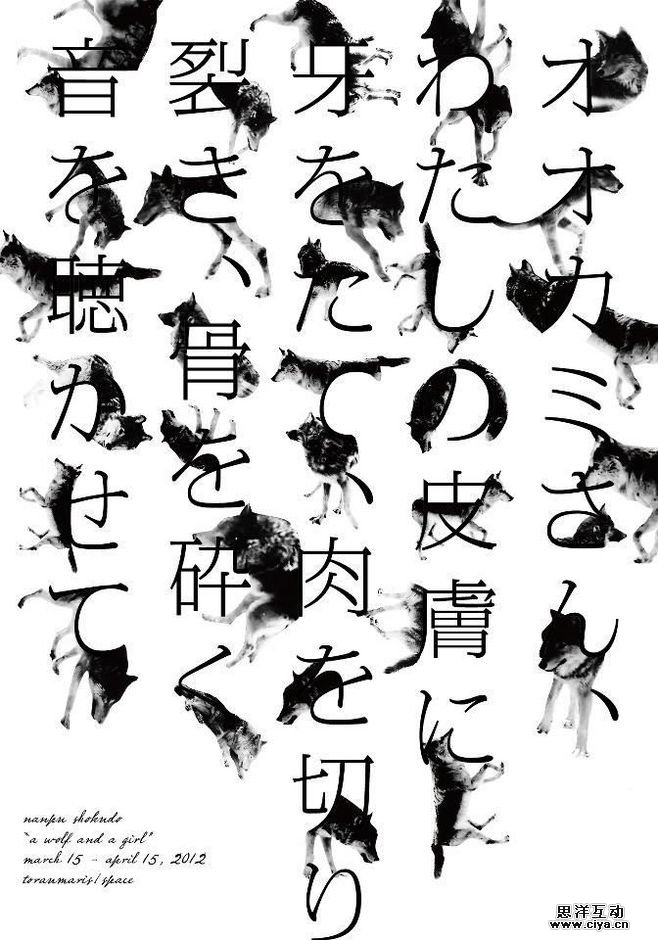 オオカミさん、
わたしの皮膚に
牙をたて、肉を切り
裂き、骨を砕く
音を聴かせて
nanpu shokudo
"a wolf and a girl"
march 15 - april 15, 2012
toraumaris/space
思洋互动
www.ciya.cn